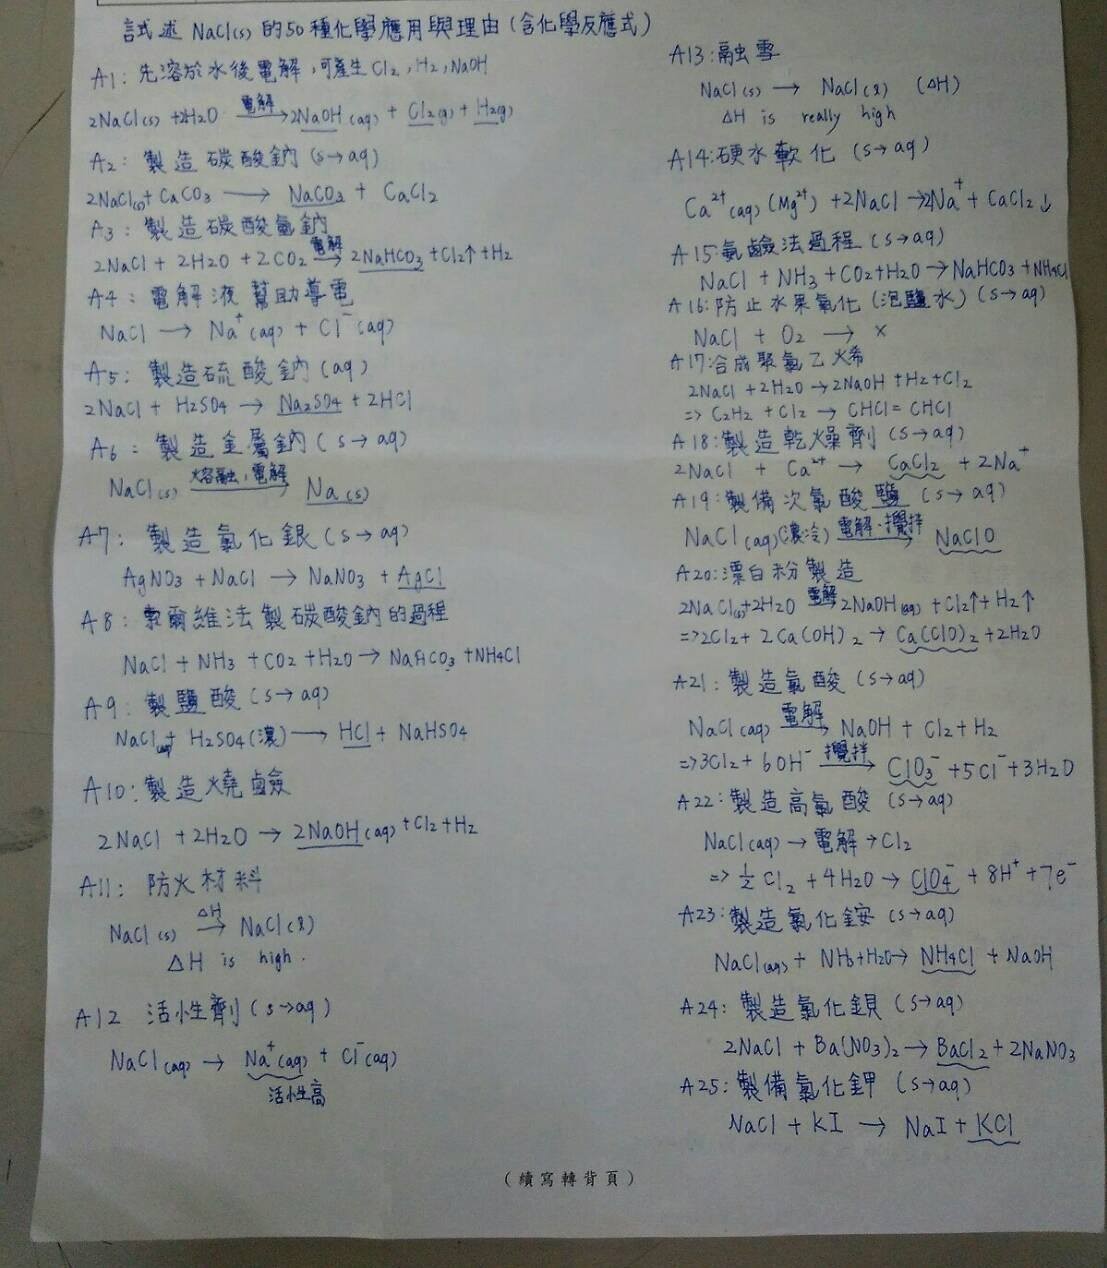 試述 NaCl(s) 的50種化學應用與理由(含化學反應式)
A1: 先溶於水後電解,可產生Cl2,H2,NaOH
2NaCl(s) +2H2O 電解→ 2NaOH(aq) + Cl2(g) + H2(g)
A2: 製造碳酸鈉(s→aq)
2NaCl(s)+ CaCO3 → NaCO3 + CaCl2
A3: 製造碳酸氫鈉
2NaCl + 2H2O + 2CO2 電解→ 2NaHCO3 +Cl2↑+H2
A4: 電解液幫助導電
NaCl → Na+(aq) + Cl-(aq)
A5: 製造硫酸鈉(aq)
2NaCl + H2SO4 → Na2SO4 + 2HCl
A6: 製造金屬鈉(s→aq)
NaCl(s) 熔融,電解→ Na(s)
A7: 製造氯化銀(s→aq)
AgNO3 + NaCl → NaNO3 + AgCl
A8: 索爾維法製碳酸鈉的過程
NaCl + NH3 + CO2 + H2O → NaHCO3 + NH4Cl
A9: 製鹽酸(s→aq)
NaCl(aq)+ H2SO4(濃) → HCl + NaHSO4
A10: 製造燒鹼
2NaCl + 2H2O → 2NaOH(aq) + Cl2 + H2
A11: 防火材料
NaCl(s) ΔH→ NaCl(l)
ΔH is high.
A12 活性劑(s→aq)
NaCl(aq) → Na+(aq) + Cl-(aq)
活性高
A13: 融雪
NaCl(s) → NaCl(l) (ΔH)
ΔH is really high
A14: 硬水軟化 (s→aq)
Ca2+(aq)(Mg2+) +2NaCl →2Na+ + CaCl2↓
A15: 氨鹼法過程(s→aq)
NaCl + NH3 + CO2+H2O → NaHCO3 + NH4Cl
A16: 防止水果氧化(泡鹽水)(s→aq)
NaCl + O2 → ×
A17: 合成聚氯乙烯
2NaCl + 2H2O → 2NaOH + H2 + Cl2
⇒ C2H2 + Cl2 → CHCl = CHCl
A18: 製造乾燥劑(s→aq)
2NaCl + Ca2+ → CaCl2 + 2Na+
A19: 製備次氯酸鹽 (s→aq)
NaCl(aq)(濃冷) 電解·攪拌→ NaClO
A20: 漂白粉製造
2NaCl(s)+2H2O 電解→ 2NaOH(aq) + Cl2↑+ H2↑
⇒2Cl2 + 2Ca(OH)2 → Ca(ClO)2 + 2H2O
A21: 製造氯酸 (s→aq)
NaCl(aq) 電解→ NaOH + Cl2 + H2
⇒3Cl2 + 6OH- 攪拌→ ClO3- +5Cl- +3H2O
A22: 製造高氯酸 (s→aq)
NaCl(aq) → 電解 → Cl2
⇒ 1/2 Cl2 + 4H2O → ClO4- + 8H+ + 7e-
A23: 製造氯化銨(s→aq)
NaCl(aq) + NH3+H2O→ NH4Cl + NaOH
A24: 製造氯化鋇(s→aq)
2NaCl + Ba(NO3)2 → BaCl2 + 2NaNO3
A25: 製備氯化鉀 (s→aq)
NaCl + KI → NaI + KCl
(續寫轉背頁)